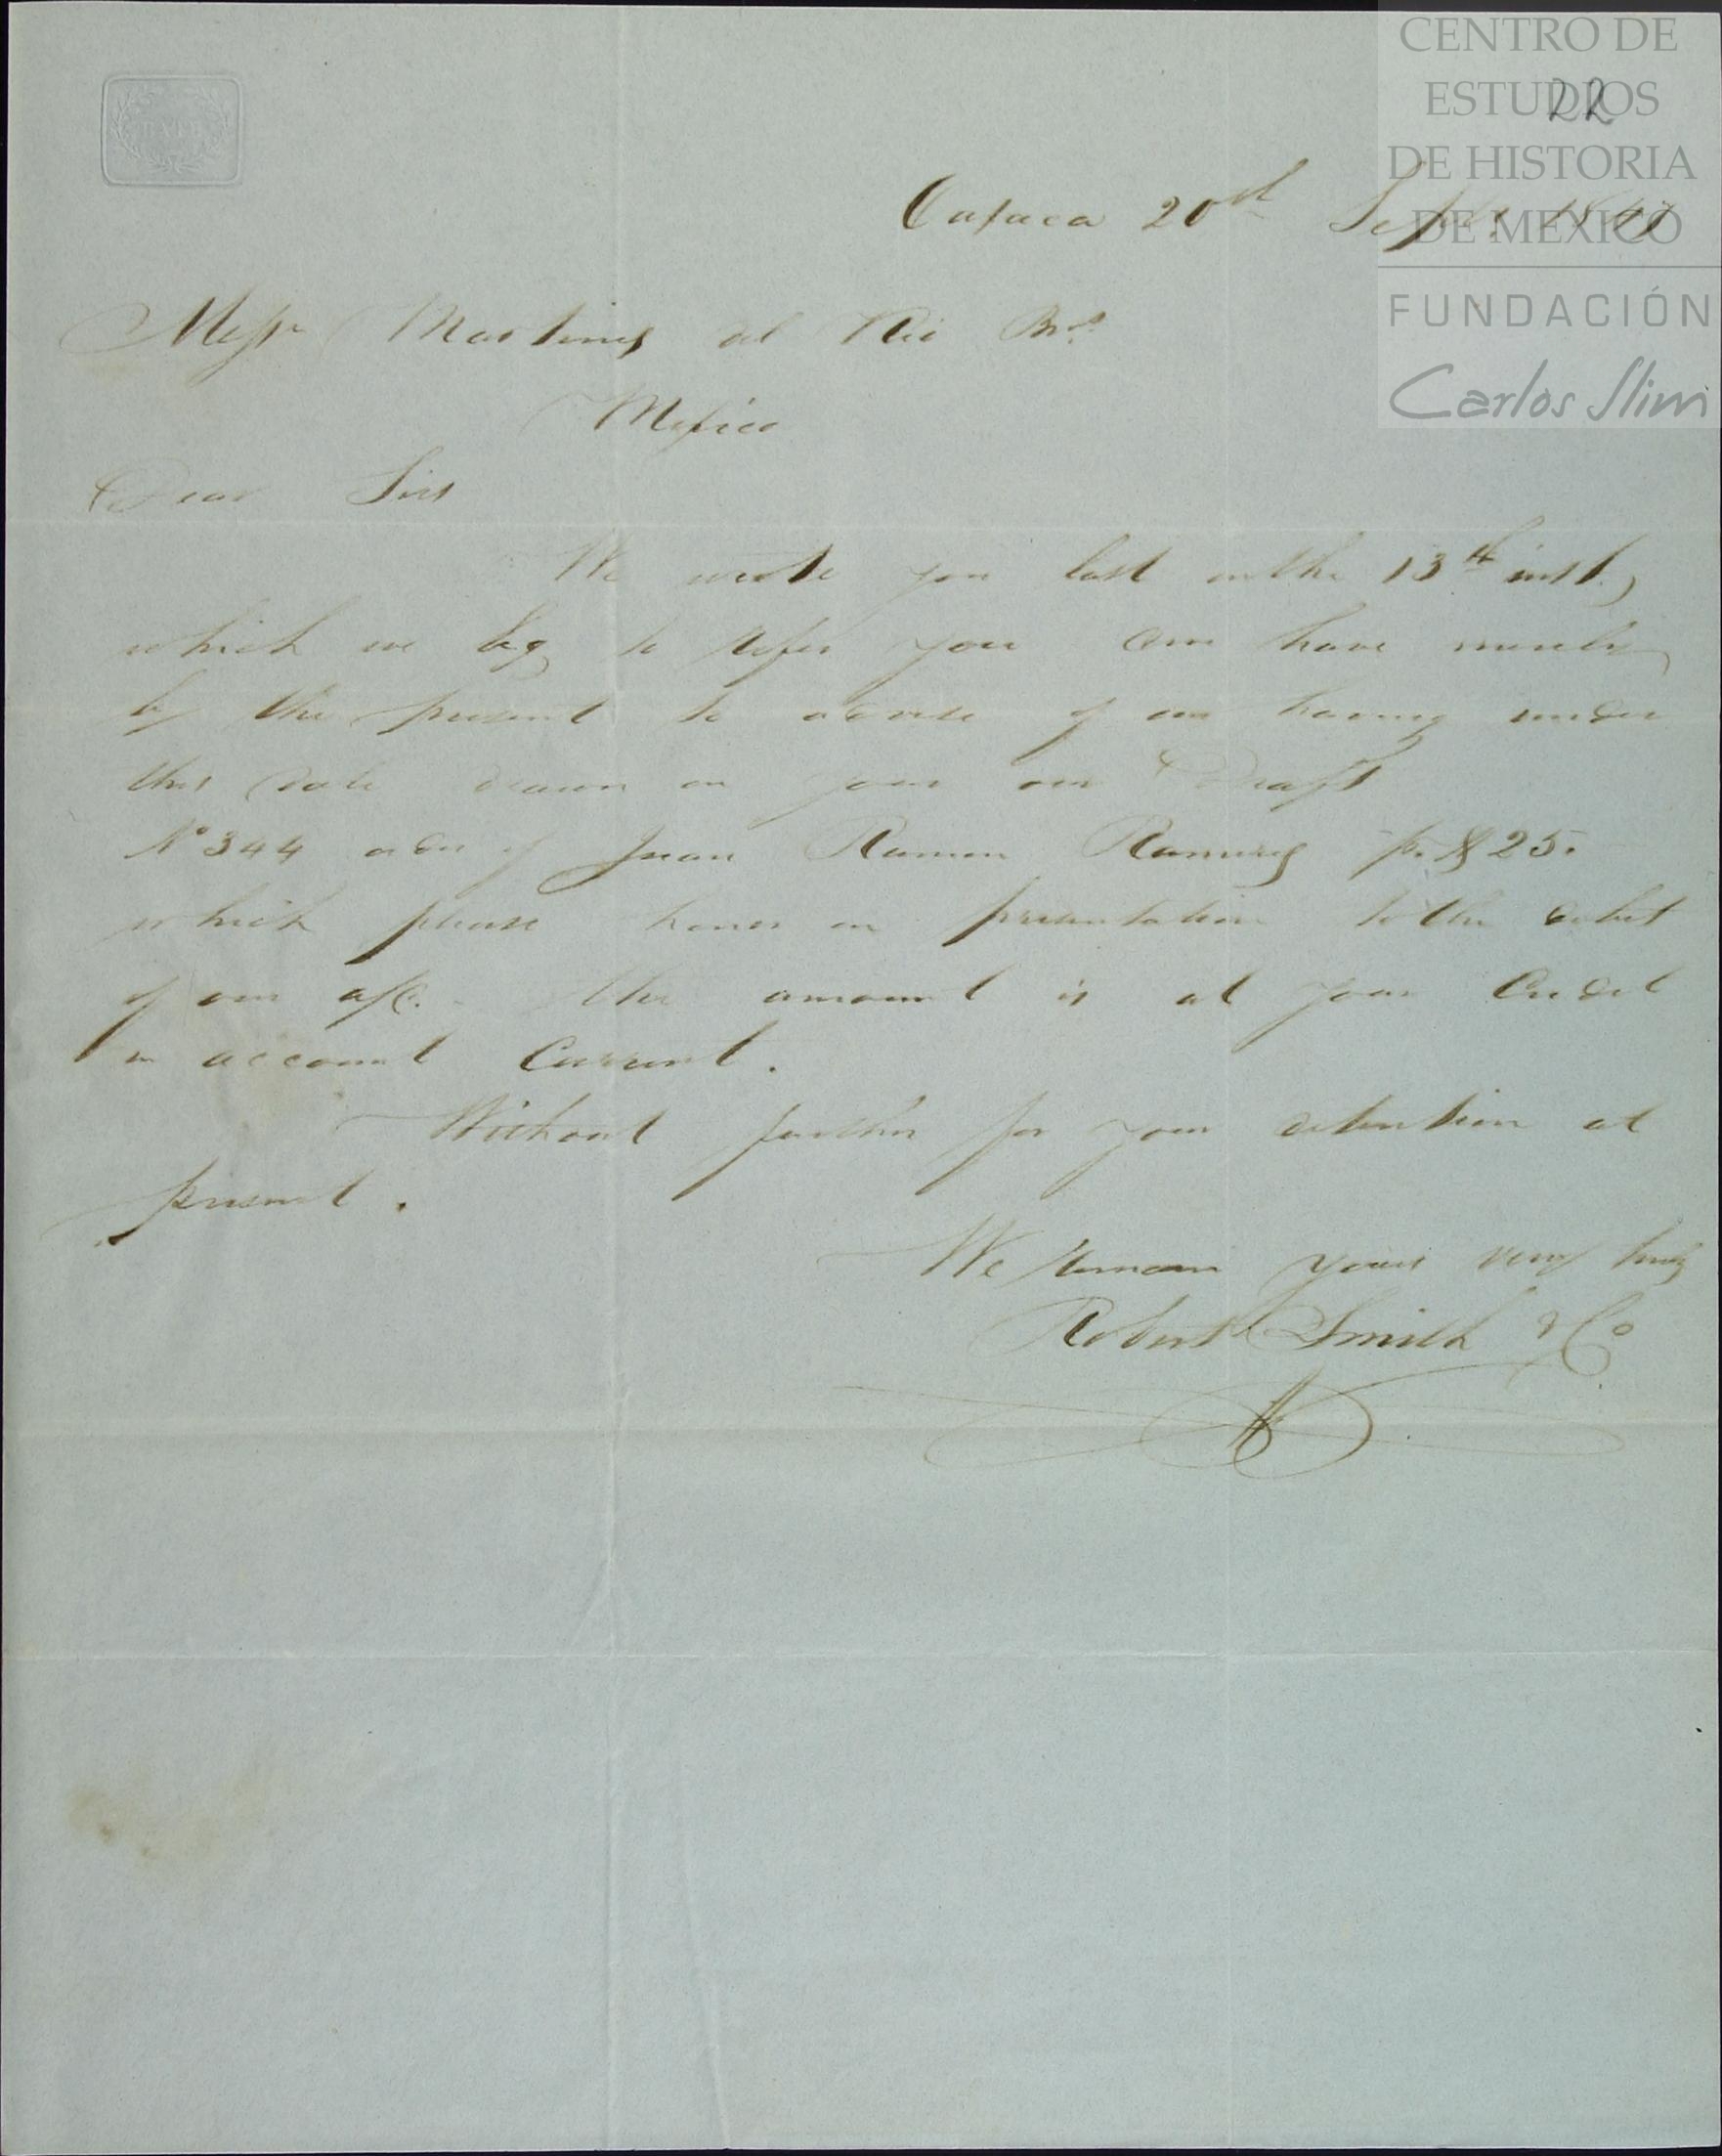 CENTRO DE
ESTUDIOS
DE HISTORIA
DE MEXICO
FUNDACIÓN
Carlos Slim
22
BATH
Oaxaca 20th Sept.
Messrs Martinez del Rio Bros.
Mexico
Dear Sirs
We wrote you last on the 13th inst.,
which we beg to refer you and have merely
by the present to advise of our having under
this date drawn on you our Draft
No 344 order of Juan Ramon Ramirez p. $25.
which please honor on presentation to the debit
of our a/c. the amount is at your Credit
in account Current.
Without further for your attention at
present.
We remain yours very truly
Robert Smith & Co